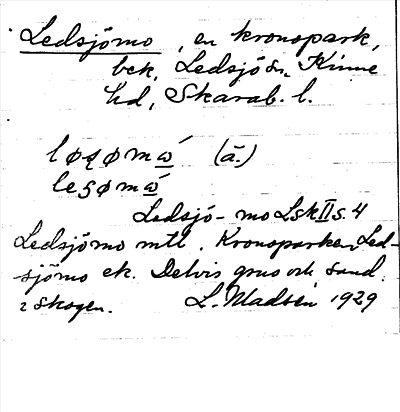 Ledsjömo, en kronopark,
bek. Ledsjö sn, Kinne
hd, Skarab. l.
løqømώ (ā.)
leʂømώ
Ledsjö-mo Lsk II s. 4
Ledsjömo mtl. Kronoparken Led-
sjömo ek. Delvis grus och sand.
i skogen. L. Madsén 1929